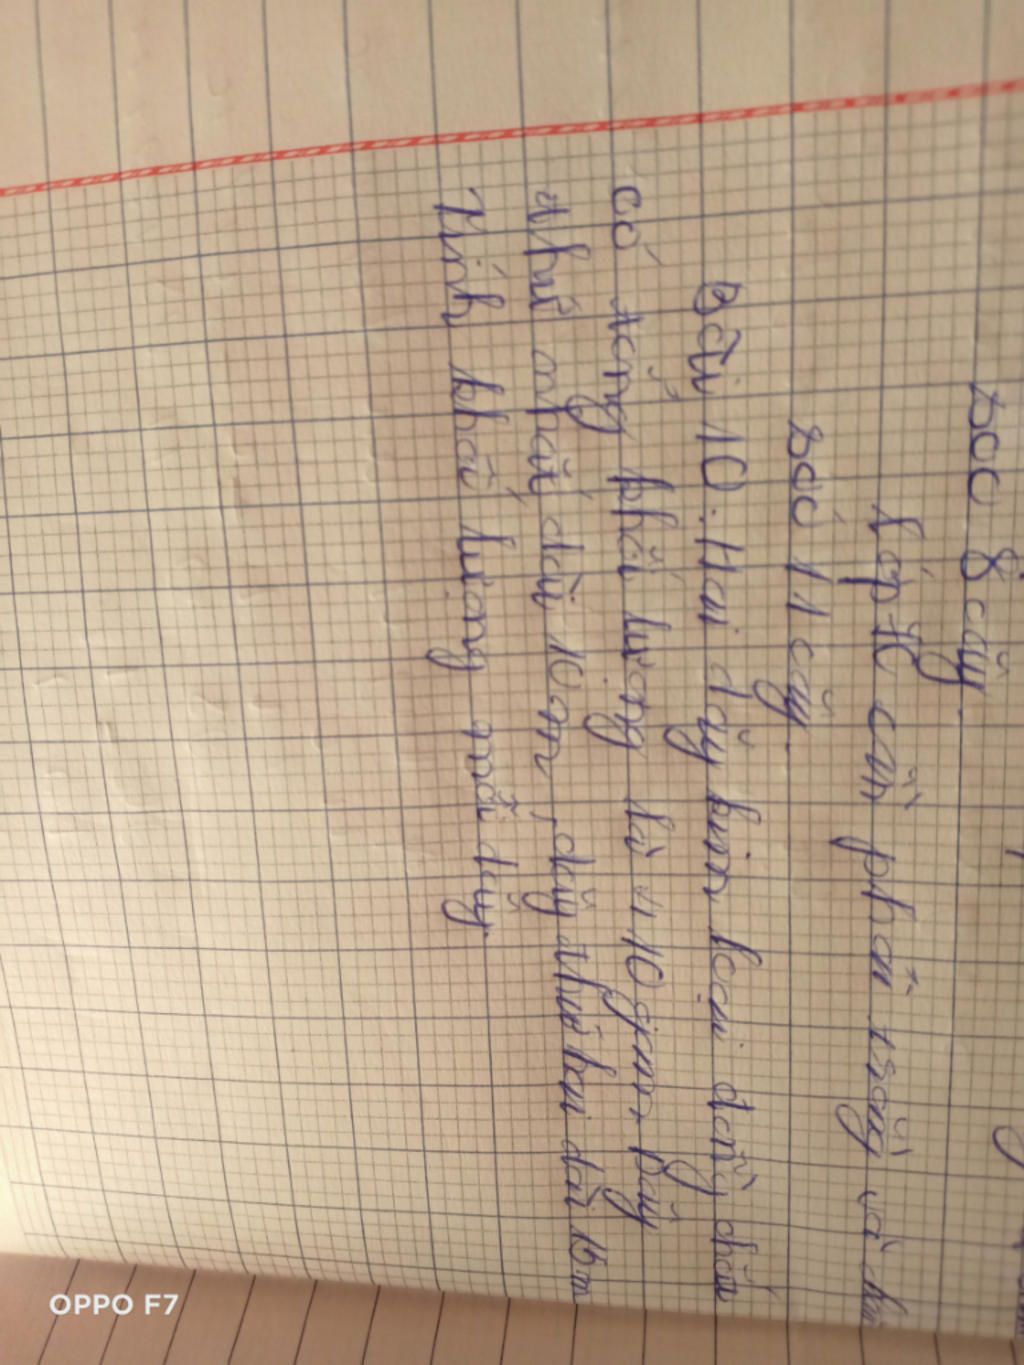 sóc 8 cây.
Lớp 7C cần phải trồng và chăm
sóc 11 cây.
Bài 10: Hai dây kim loại đồng chất
có tổng khối lượng là 410 gam. Dây
thứ nhất dài 10m, dây thứ hai dài 15m
Tính khối lượng mỗi dây.
OPPO F7